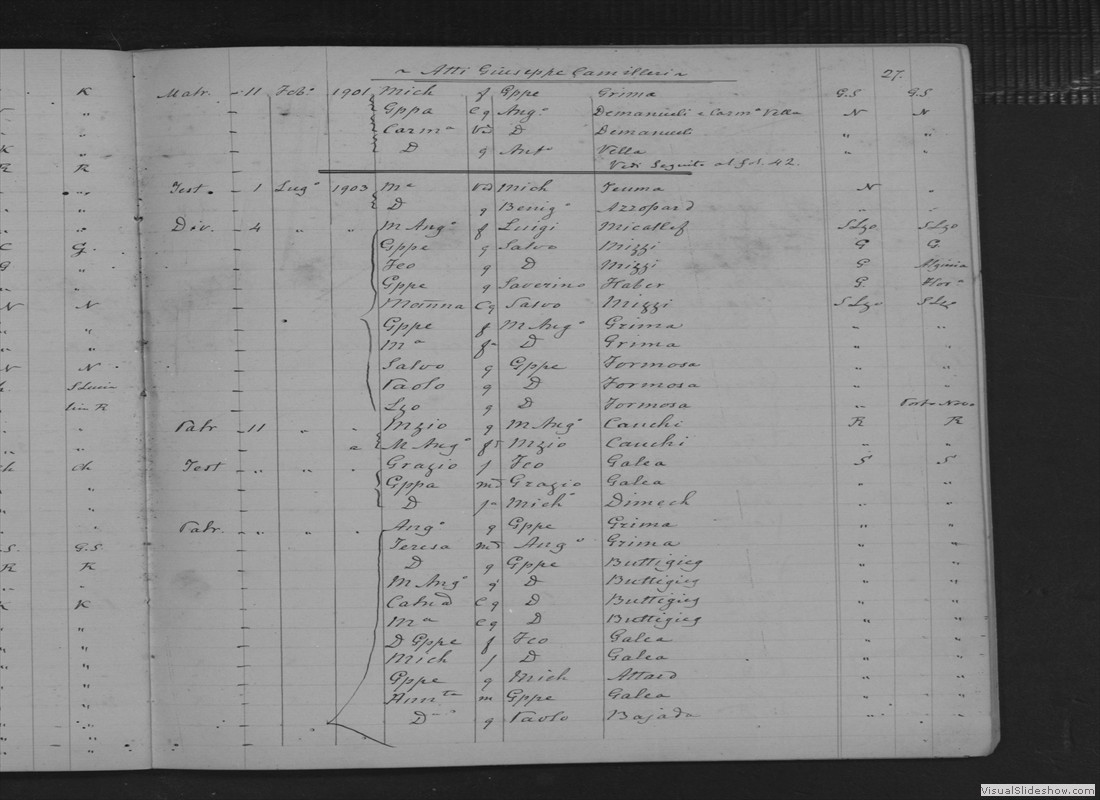 K
"
"
K "
K K
" "
" "
" "
C G
G "
" "
N N
" "
" "
N N
S Lucia
" "
ch ch
" "
" "
G.S. G.S.
K K
K K
Atti Giuseppe Camilleri 27.
Matr. - 11 Feb° 1901 Mich f Gppe Grima G.S G.S
Gppa Cg Ang° Demanueli e Carmª Vella N N
Carmª Vd D Demanueli " "
D g Ant° Vella " "
Vedi Seguito al fol. 42.
Test. - 1 Lug° 1903 Mª Vd Mich Teuma N "
D g Benig° Azzopard " "
Div. - 4 " " M Ang° f Luigi Micallef S Lzo S Lzo
Gppe g Salvo Mizzi G G
Fco g D Mizzi G Algeria
Gppe g Saverino Haber G.
Cg Salvo Mizzi S Lzo S Lzo
Gppe f M Ang° Grima " "
Mª fª D Grima " "
Salvo g Gppe Formosa " "
Paolo g D Formosa " "
Lzo g D Formosa "
Patr - 11 " " Nzio g M Ang° Cauchi K K
M Ang° Nzio Cauchi " "
Test - " " " Grazio f Fco Galea S S
Gppa Grazio Galea " "
D fª Mich Dimech " "
Patr. - " " " Ang° g Gppe Grima " "
Teresa Ang° Grima " "
D g Gppe Buttigieg " "
M Ang° g D Buttigieg " "
Cg D Buttigieg " "
Mª Cg D Buttigieg " "
D Gppe f Fco Galea " "
Mich f D Galea " "
Gppe g Mich Attard " "
m Gppe Galea " "
D g Paolo Bajada " "
VisualSlideshow.com